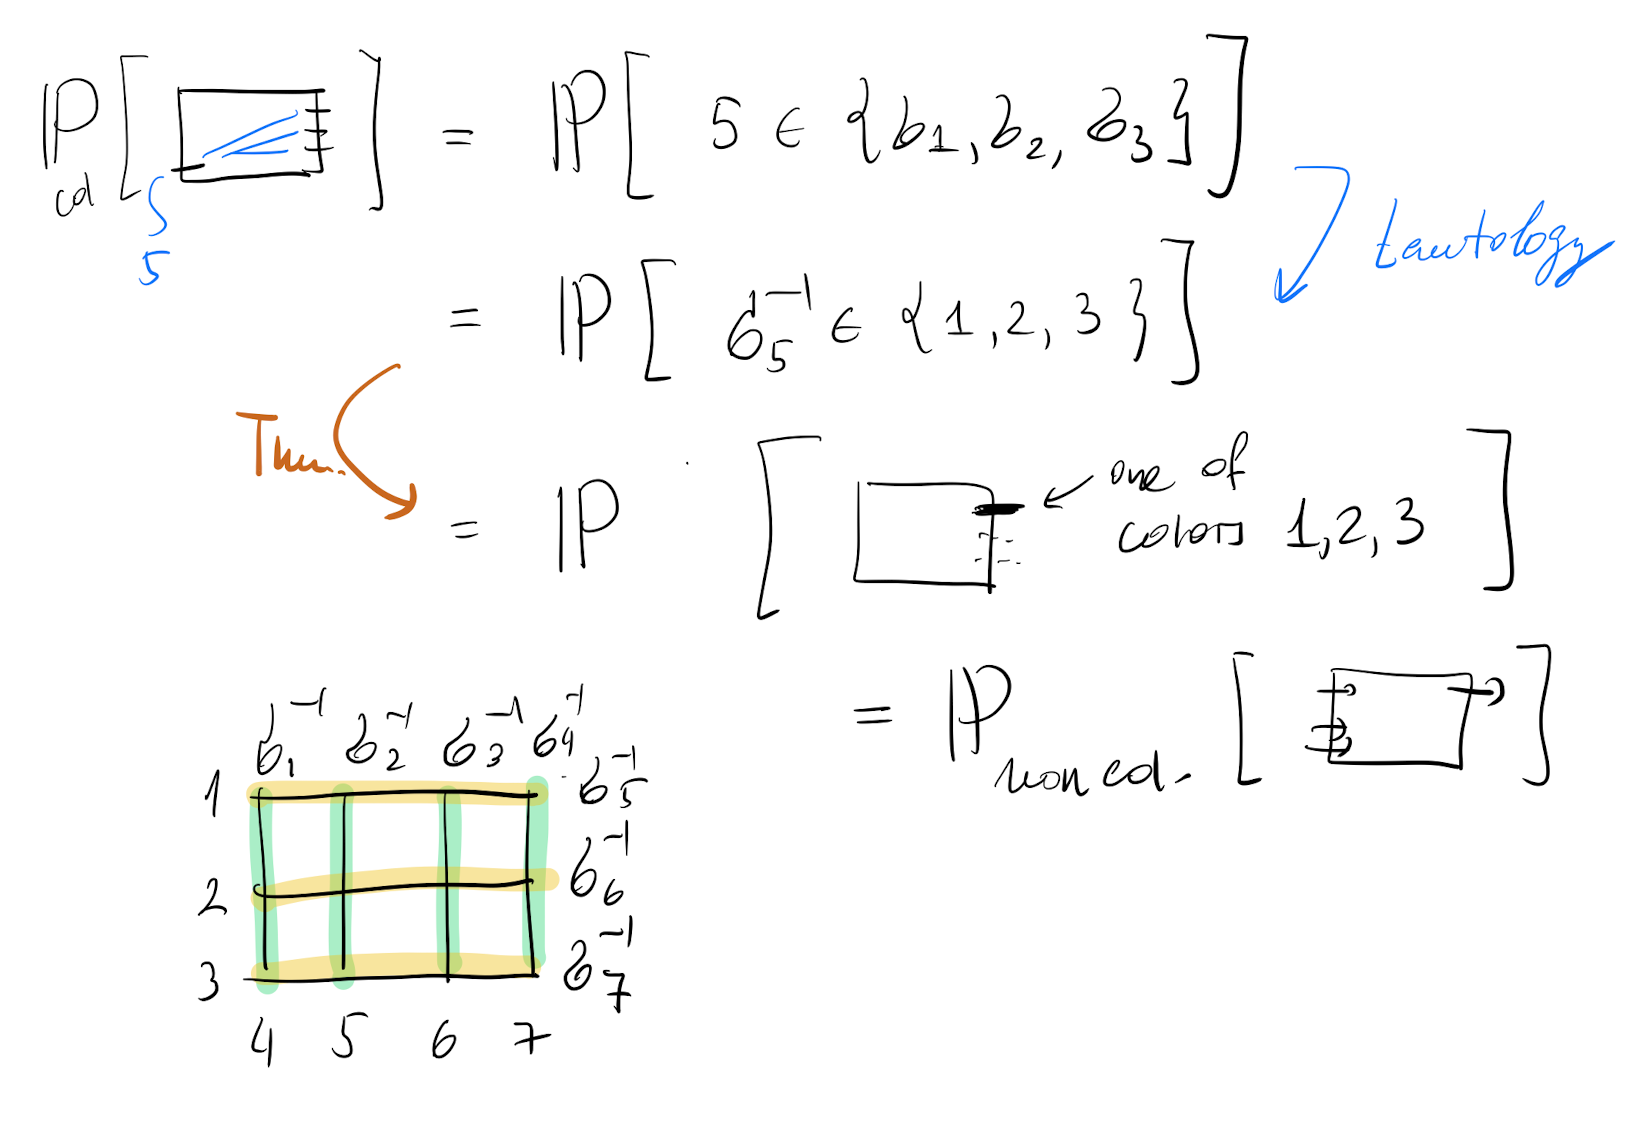 ℙ_col [ ] = ℙ[ 5 ∈ {σ₁, σ₂, σ₃} ]
5
tautology
= ℙ[ σ₅⁻¹ ∈ {1, 2, 3} ]
Thm.
= ℙ [ one of colors 1, 2, 3 ]
= ℙ_non col. [ ]
σ₁⁻¹ σ₂⁻¹ σ₃⁻¹ σ₄⁻¹
1 σ₅⁻¹
2 σ₆⁻¹
3 σ₇⁻¹
4 5 6 7